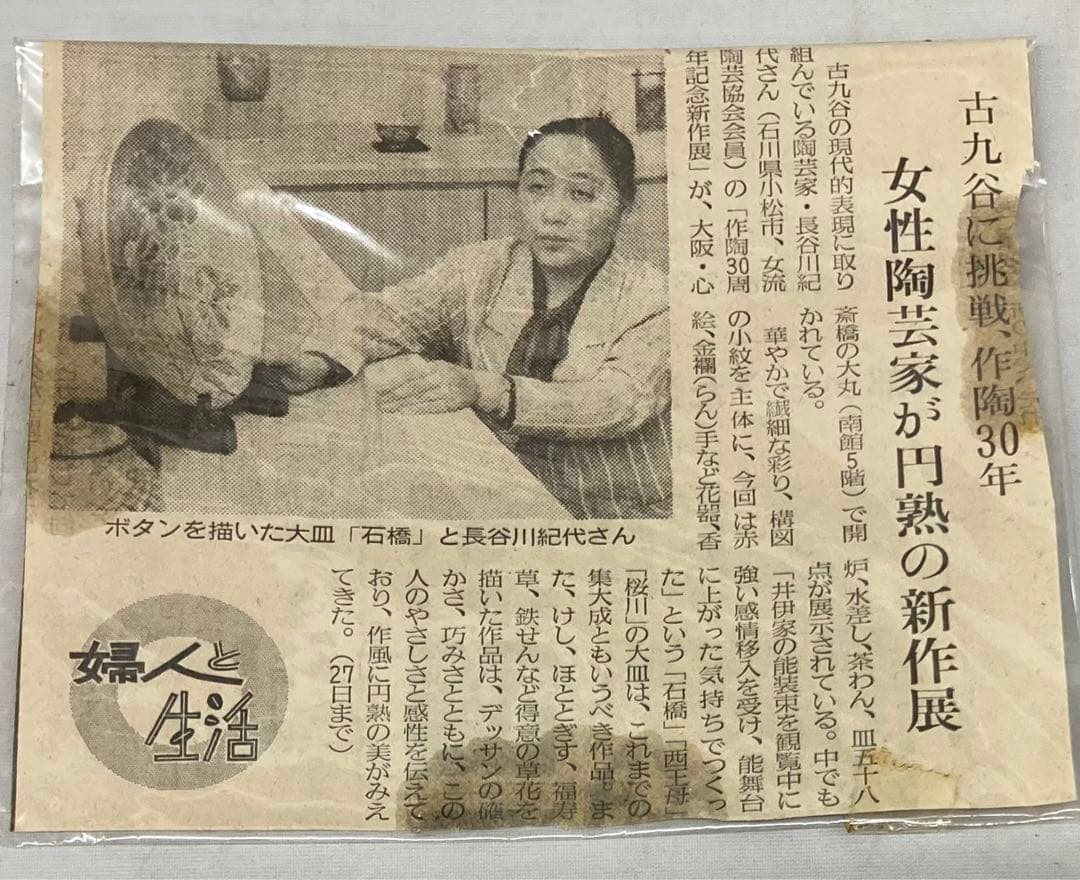 古九谷に挑戦、作陶30年
女性陶芸家が円熟の新作展
古九谷の現代的表現に取り
組んでいる陶芸家・長谷川紀
代さん（石川県小松市、女流
陶芸協会会員）の「作陶30周
年記念新作展」が、大阪・心
斎橋の大丸（南館5階）で開
かれている。
華やかで繊細な彩り、構図
の小紋を主体に、今回は赤
絵、金襴（らん）手など花器、香
炉、水差し、茶わん、皿五十八
点が展示されている。中でも
「井伊家の能装束を観覧中に
強い感情移入を受け、能舞台
に上がった気持ちでつくっ
た」という「石橋」「西王母」
「桜川」の大皿は、これまでの
集大成ともいうべき作品。ま
た、けし、ほととぎす、福寿
草、鉄せんなど得意の草花を
描いた作品は、デッサンの確
かさ、巧みさとともに、この
人のやさしさと感性を伝えて
おり、作風に円熟の美がみえ
てきた。（27日まで）
ボタンを描いた大皿「石橋」と長谷川紀代さん
婦人と
生活